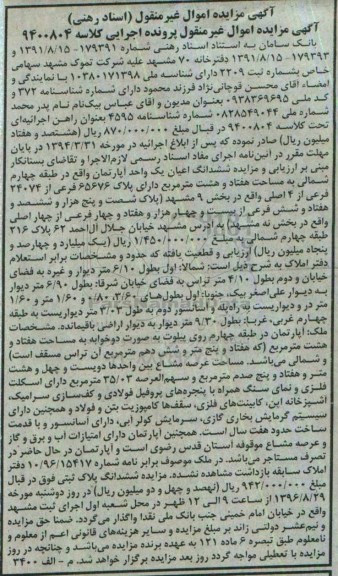 آگهی مزایده اموال غیرمنقول (اسناد رهنی)
آگهی مزایده اموال غیرمنقول پرونده اجرایی کلاسه ۹۴۰۰۸۰۴
بانک سامان به استناد اسناد رهنی شماره ۱۷۹۳۹۱ - ۱۳۹۱/۸/۱۵ و
۱۷۹۳۹۳ - ۱۳۹۱/۸/۱۵ دفترخانه ۷۰ مشهد علیه شرکت تموک مشهد سهامی
خاص بشماره ثبت ۲۲۰۹ دارای شناسه ملی ۱۰۳۸۰۱۷۱۳۹۸ با نمایندگی و
امضاء آقای محسن قوچانی‌نژاد فرزند محمود دارای شماره شناسنامه ۳۷۲ و
کد ملی ۰۹۳۸۳۶۹۶۹۵ بعنوان مدیون و آقای عباس بیک‌نام نام پدر محمد
شماره ملی ۰۸۲۸۵۴۹۰۴۴ شماره شناسنامه ۴۵۹۵ بعنوان راهن اجرائیه‌ای
تحت کلاسه ۹۴۰۰۸۰۴ در قبال مبلغ ۸۷۰/۰۰۰/۰۰۰ ریال (هشتصد و هفتاد
میلیون ریال) صادر نموده که پس از ابلاغ اجرائیه در مورخه ۱۳۹۴/۳/۳۱ در پایان
مهلت مقرر در آئین‌نامه اجرای مفاد اسناد رسمی لازم‌الاجرا و تقاضای بستانکار
مبنی بر ارزیابی و مزایده ششدانگ اعیان یک واحد آپارتمان واقع در طبقه چهارم
شمالی به مساحت هفتاد و هشت مترمربع دارای پلاک ۶۵۶۷۶ فرعی از ۲۴۰۷۴
فرعی از ۴ اصلی واقع در بخش ۹ مشهد (پلاک شصت و پنج هزار و ششصد و
هفتاد و شش فرعی از بیست و چهار هزار و هفتاد و چهار فرعی از چهار اصلی
واقع در بخش نه مشهد) به آدرس مشهد خیابان جلال آل‌احمد ۶۲ پلاک ۲۱۶
طبقه چهارم شمالی به مبلغ ۱/۴۵۰/۰۰۰/۰۰۰ ریال (یک میلیارد و چهارصد و
پنجاه میلیون ریال) ارزیابی و قطعیت یافته که حدود و مشخصات برابر استعلام
دفتر املاک به شرح ذیل است: شمالا: اول بطول ۶/۱۰ متر دیوار و غیره به فضای
خیابان و دوم بطول ۴/۱۰ متر تراس به فضای خیابان شرقا: بطول ۶/۹۰ متر دیوار
به دیوار علی‌اصغر بیک، جنوبا: اول بطول‌های ۳/۰۶ و ۰/۸۰ و ۱/۶۰ متر و ۱/۶۰
متر در و دیواریست به راه‌پله و آسانسور دوم به طول ۴/۰۳ متر دیواریست به طبقه
چهارم غربی، غربا: بطول ۹/۳۰ متر دیوار به دیوار اراضی باقیمانده. مشخصات
ملک: آپارتمان در طبقه چهارم روی پیلوت به صورت دوخوابه به مساحت هفتاد و
هشت مترمربع (که هفتاد و پنج متر و شش دهم مترمربع آن تراس مسقف است)
و شمالی می‌باشد. مساحت عرصه مشاع بین واحدها دویست و چهل و هشت
متر و هفتاد و پنج صدم مترمربع و سهم‌العرصه ۳۵/۰۳ مترمربع دارای اسکلت
فلزی و نمای سنگ همراه با پنجره‌های پروفیل فولادی و کف‌سازی سرامیک
آشپزخانه اپن، کابینت‌های فلزی، سقف‌ها کامپوزیت بتن و فولاد و همچنین دارای
سیستم گرمایش بخاری گازی، سرمایش کولر آبی، دارای آسانسور و با قدمت
ساخت حدود هفت سال است. همچنین آپارتمان دارای امتیازات آب و برق و گاز
و عرصه مشاع موقوفه آستان قدس رضوی است و آپارتمان در حال حاضر در
تصرف مستاجر می‌باشد. در ملک موصوف برابر نامه شماره ۱۰/۹۶/۱۵۴۱۷ دفتر
املاک سابقه بازداشت مشاهده نشده. مزایده ششدانگ پلاک ثبتی فوق در قبال
مبلغ ۹۴۲/۰۰۰/۰۰۰ ریال (نهصد و چهل و دو میلیون ریال) در روز دوشنبه مورخه
۱۳۹۶/۸/۲۹ از ساعت ۹ الی ۱۲ ظهر در محل شعبه اول اجرای ثبت مشهد
واقع در خیابان امام خمینی جنب بانک ملی نقدا واگذار می‌گردد. ضمنا حق مزایده
و نیم‌عشر دولتی زاند بر مبلغ مزایده و سایر هزینه‌های قانونی اعم از معلوم و
نامعلوم طبق تبصره ۶ ماده ۱۲۱ به عهده برنده مزایده می‌باشد و چنانچه در روز
مزایده با تعطیلی مواجه گردد روز بعد مزایده برگزار خواهد شد. م - الف ۳۴۰۰